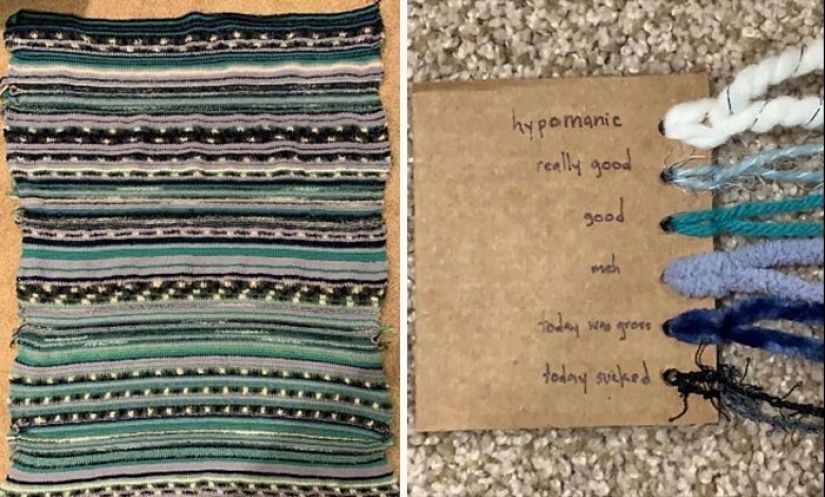 hypomanic
really good
good
meh
Today was gross
today sucked